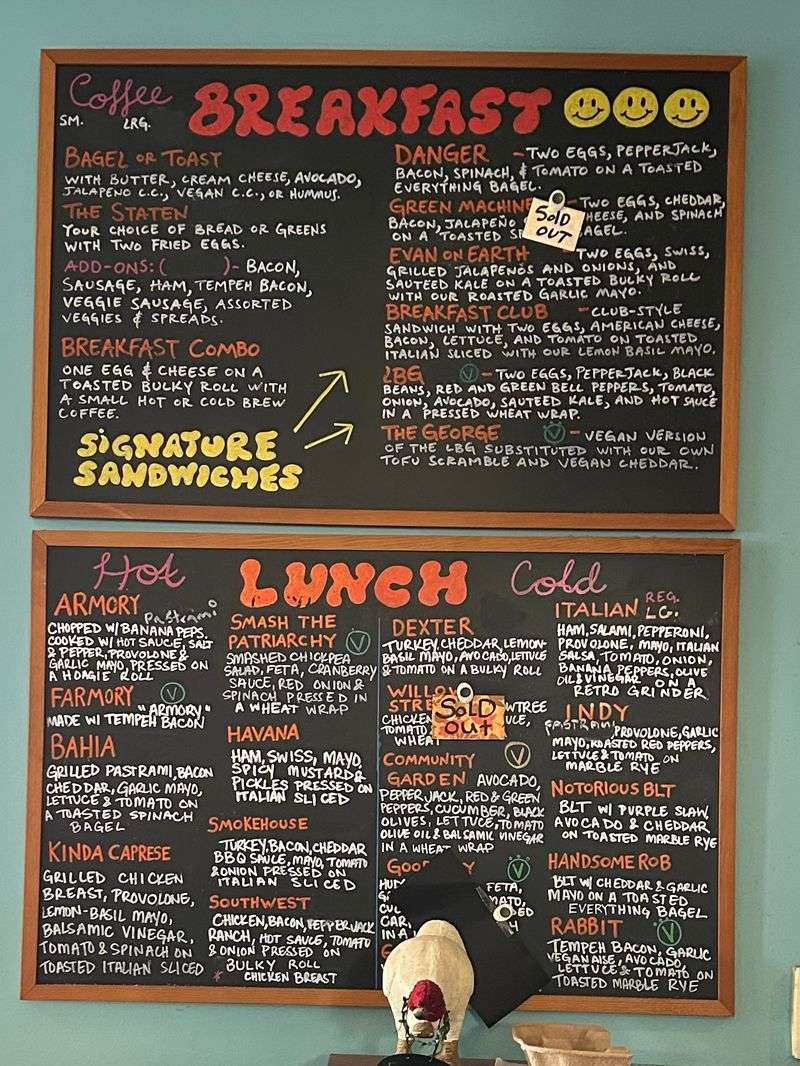 Coffee
SM. LRG.
BREAKFAST
BAGEL OR TOAST
WITH BUTTER, CREAM CHEESE, AVOCADO,
JALAPENO C.C., VEGAN C.C., OR HUMMUS.
THE STATEN
YOUR CHOICE OF BREAD OR GREENS
WITH TWO FRIED EGGS.
ADD-ONS: ( )- BACON,
SAUSAGE, HAM, TEMPEH BACON,
VEGGIE SAUSAGE, ASSORTED
VEGGIES & SPREADS.
BREAKFAST COMBO
ONE EGG & CHEESE ON A
TOASTED BULKY ROLL WITH
A SMALL HOT OR COLD BREW
COFFEE.
SIGNATURE
SANDWICHES
DANGER - TWO EGGS, PEPPERJACK,
BACON, SPINACH, & TOMATO ON A TOASTED
EVERYTHING BAGEL.
GREEN MACHINE TWO EGGS, CHEDDAR,
BACON, JALAPEÑO HEESE, AND SPINACH
ON A TOASTED SP AGEL.
SOLD
OUT
EVAN ON EARTH - TWO EGGS, SWISS,
GRILLED JALAPEÑOS AND ONIONS, AND
SAUTEED KALE ON A TOASTED BULKY ROLL
WITH OUR ROASTED GARLIC MAYO.
BREAKFAST CLUB - CLUB-STYLE
SANDWICH WITH TWO EGGS, AMERICAN CHEESE,
BACON, LETTUCE, AND TOMATO ON TOASTED
ITALIAN SLICED WITH OUR LEMON BASIL MAYO.
LBG V - TWO EGGS, PEPPERJACK, BLACK
BEANS, RED AND GREEN BELL PEPPERS, TOMATO,
ONION, AVOCADO, SAUTEED KALE, AND HOT SAUCE
IN A PRESSED WHEAT WRAP.
THE GEORGE V - VEGAN VERSION
OF THE LBG SUBSTITUTED WITH OUR OWN
TOFU SCRAMBLE AND VEGAN CHEDDAR.
Hot LUNCH Cold
ARMORY
Pastrami
CHOPPED W/ BANANA PEPS.
COOKED W/ HOT SAUCE, SALT
& PEPPER, PROVOLONE &
GARLIC MAYO, PRESSED ON
A HOAGIE ROLL
FARMORY V
"ARMORY"
MADE W/ TEMPEH BACON
BAHIA
GRILLED PASTRAMI, BACON
CHEDDAR, GARLIC MAYO,
LETTUCE & TOMATO ON
A TOASTED SPINACH
BAGEL
KINDA CAPRESE
GRILLED CHICKEN
BREAST, PROVOLONE,
LEMON-BASIL MAYO,
BALSAMIC VINEGAR,
TOMATO & SPINACH ON
TOASTED ITALIAN SLICED
SMASH THE
PATRIARCHY V
SMASHED CHICKPEA
SALAD, FETA, CRANBERRY
SAUCE, RED ONION &
SPINACH PRESSED IN
A WHEAT WRAP
HAVANA
HAM, SWISS, MAYO
SPICY MUSTARD &
PICKLES PRESSED ON
ITALIAN SLICED
SMOKEHOUSE
TURKEY, BACON, CHEDDAR
BBQ SAUCE, MAYO, TOMATO
& ONION PRESSED ON
ITALIAN SLICED
SOUTHWEST
CHICKEN, BACON, PEPPERJACK
RANCH, HOT SAUCE, TOMATO
& ONION PRESSED ON
BULKY ROLL
* CHICKEN BREAST
DEXTER
TURKEY, CHEDDAR, LEMON-
BASIL MAYO, AVOCADO, LETTUCE
& TOMATO ON A BULKY ROLL
WILLOW
STRE
CHICKEN
TOMATO
WHEAT
SOLD
OUT
COMMUNITY V
GARDEN AVOCADO,
PEPPER JACK, RED & GREEN
PEPPERS, CUCUMBER, BLACK
OLIVES, LETTUCE, TOMATO
OLIVE OIL & BALSAMIC VINEGAR
IN A WHEAT WRAP
V
FETA,
IN A
ITALIAN REG.
LG.
HAM, SALAMI, PEPPERONI,
PROVOLONE, MAYO, ITALIAN
SALSA, TOMATO, ONION,
BANANA PEPPERS, OLIVE
OIL & VINEGAR ON A
RETRO GRINDER
INDY
PASTRAMI, PROVOLONE, GARLIC
MAYO, ROASTED RED PEPPERS,
LETTUCE & TOMATO ON
MARBLE RYE
NOTORIOUS BLT
BLT W/ PURPLE SLAW,
AVOCADO & CHEDDAR
ON TOASTED MARBLE RYE
HANDSOME ROB
BLT W/ CHEDDAR & GARLIC
MAYO ON A TOASTED
EVERYTHING BAGEL
RABBIT V
TEMPEH BACON, GARLIC
VEGANAISE, AVOCADO,
LETTUCE & TOMATO ON
TOASTED MARBLE RYE